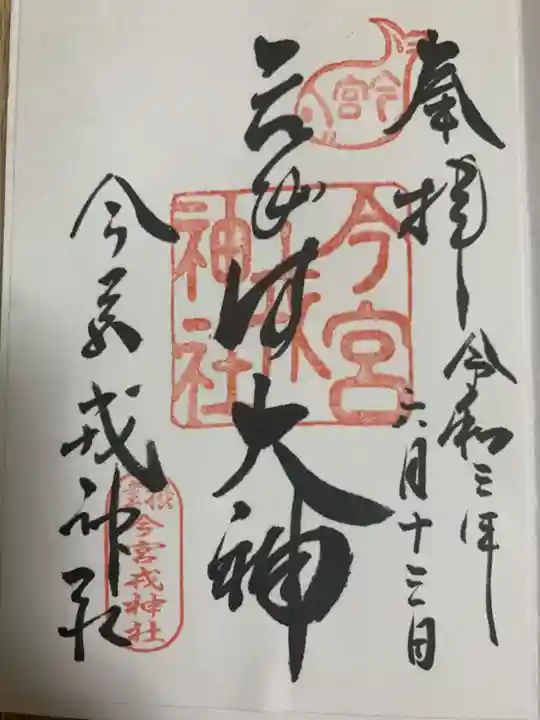 奉拝
令和三年
六月十三日
今宮
ゑびす大神
今宮
戎
神社
今宮戎神社
今宮戎神社